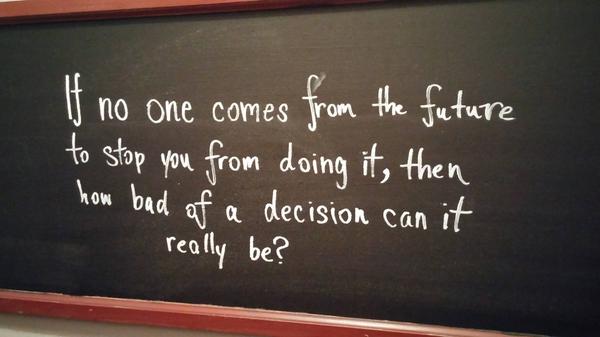 If no one comes from the future
to stop you from doing it, then
how bad of a decision can it
really be?